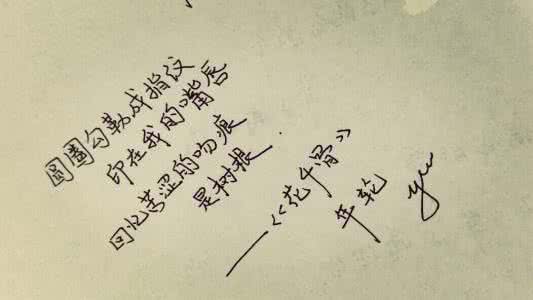 圆圈勾勒成指议
印在我的嘴唇
回忆苦涩的吻痕
是树根.
——《花千骨》
年轮 yu